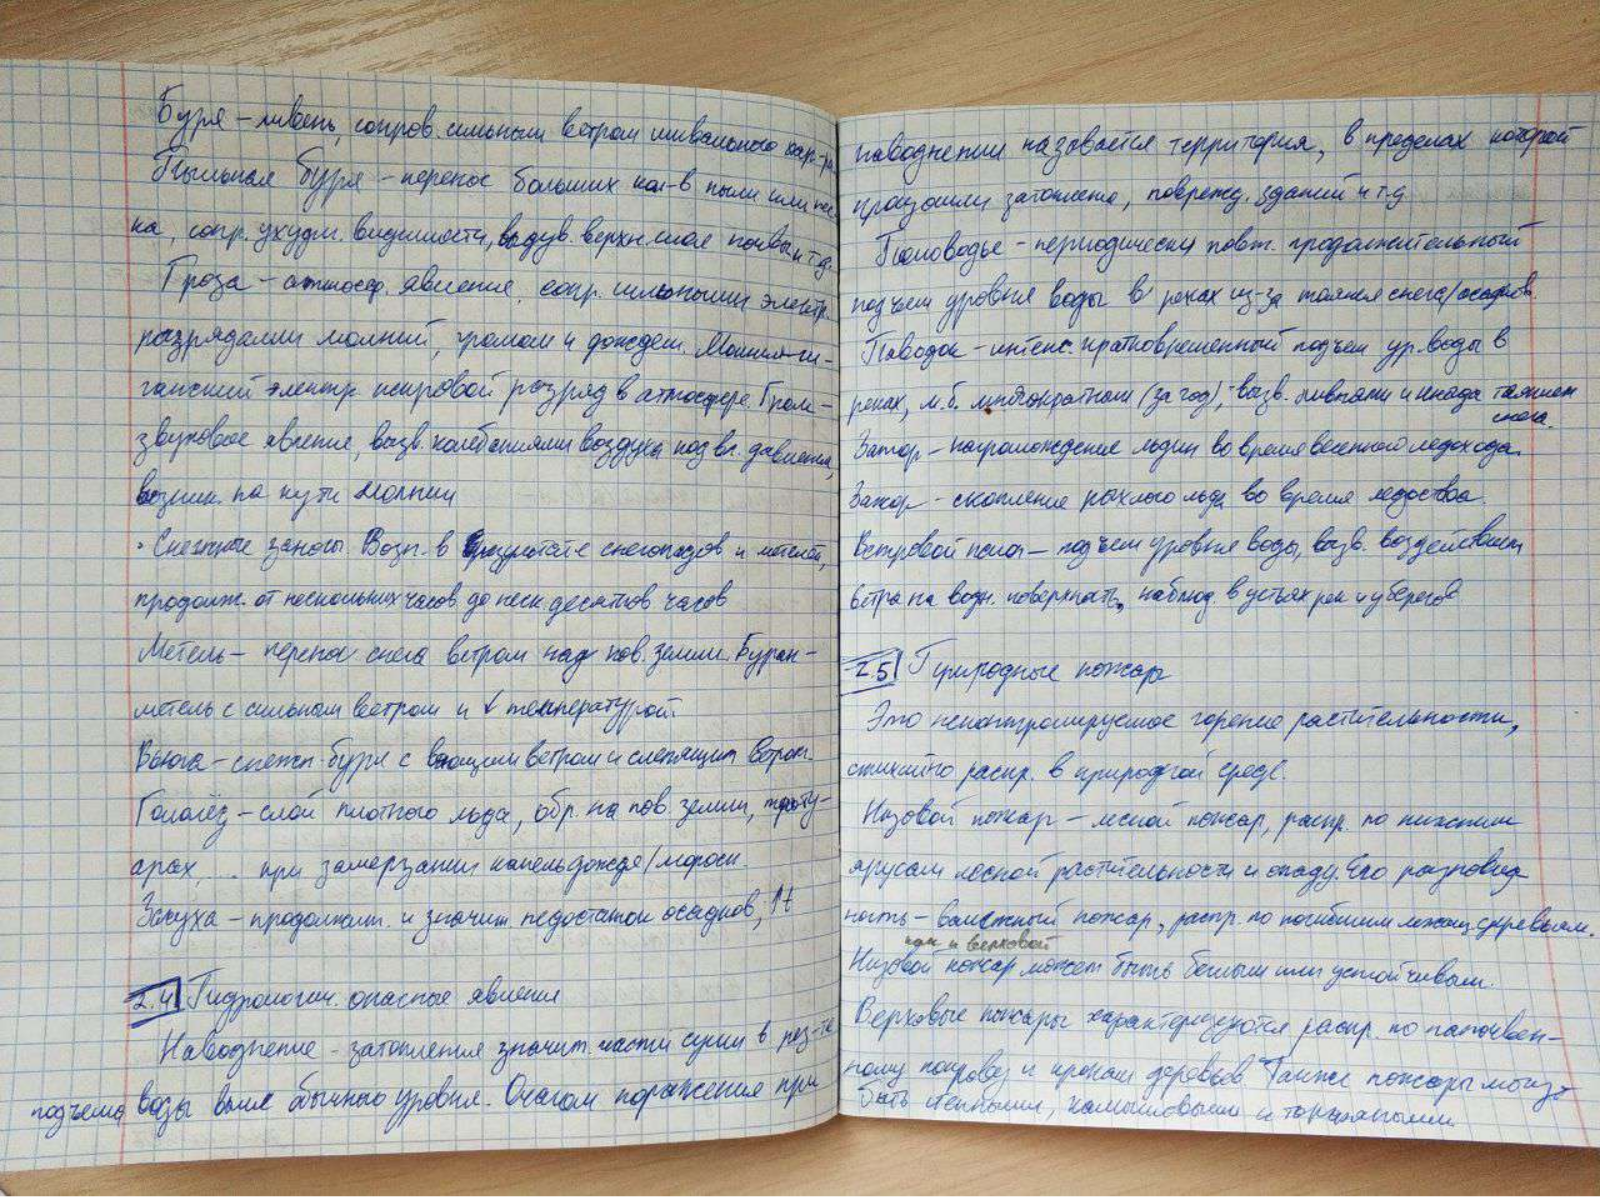 Буря – ливень, сопров. сильным ветром шквального хар-ра
Пыльная буря – перенос больших кол-в пыли или пес-
ка, сопр. ухудш. видимости, выдув. верхн. слоя почвы и т.д.
Гроза – атмосф. явление, сопр. сильными электр.
разрядами молний, громом и дождем. Молния – ги-
гантский электр. искровой разряд в атмосфере. Гром –
звуковое явление, вызв. колебаниями воздуха под вл. давления,
возник. на пути молнии
• Снежные заносы. Возн. в результате снегопадов и метелей,
продолж. от нескольких часов до неск. десятков часов
Метель – перенос снега ветром над пов. земли. Буран –
метель с сильным ветром и ↓ температурой
Вьюга – снежн. буря с воющим ветром и слепящим
Гололёд – слой плотного льда, обр. на пов. земли, троту-
арах, ... при замерзании капель дождя/мороси.
Засуха – продолжит. и значит. недостаток осадков, ↑t
2.4 Гидрологич. опасные явления
Наводнение – затопления значит. части суши в рез-те
подъема воды выше обычного уровня. Очагом поражения при
наводнении называется территория, в пределах которой
произошли затопление, поврежд. зданий и т.д
Половодье – периодически повт. продолжительный
подъем уровня воды в реках из-за таяния снега/осадков.
Паводок – интенс. кратковременный подъем ур. воды в
реках, м.б. многократным (за год), вызв. ливнями и иногда таянием
снега.
Затор – нагромождение льдин во время весеннего ледохода.
Зажор – скопление рыхлого льда во время ледостава.
Ветровой нагон – подъем уровня воды, вызв. воздействием
ветра на водн. поверхность, наблюд. в устьях рек и у берегов
2.5 Природные пожары
Это неконтролируемое горение растительности,
стихийно распр. в природной среде.
Низовой пожар – лесной пожар, распр. по нижним
ярусам лесной растительности и опаду. Его разновид-
ность – валежный пожар, распр. по погибшим лежащ. деревьям.
как и верховой
Низовой пожар может быть беглым или устойчивым.
Верховые пожары характеризуются распр. по напочвен-
ному покрову и кронам деревьев. Также пожары могут
быть степными, камышовыми и торфяными